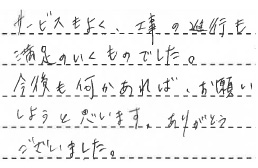 サービスもよく、工事の進行も
満足のいくものでした。
今後も何かあれば、お願い
しようと思います。ありがとう
ございました。